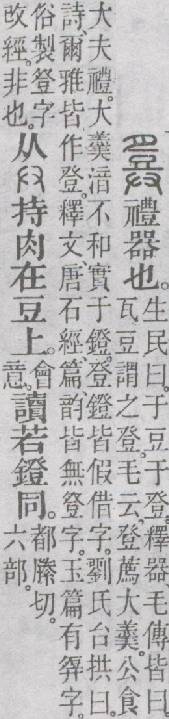 禮器也。
生民曰。于豆于登。釋器毛傳皆曰
瓦豆謂之登。毛云。登薦大羹。公食
大夫禮。大羹湆不和實于鐙。登鐙皆假借字。劉氏台拱曰。
詩、爾雅皆作登。釋文、唐石經、篇韵皆無䇺字。玉篇有𢍪字。
俗製䇺字
改經。非也。
从𠬞持肉在豆上。
會
意。
讀若鐙同。
都滕切。
六部。